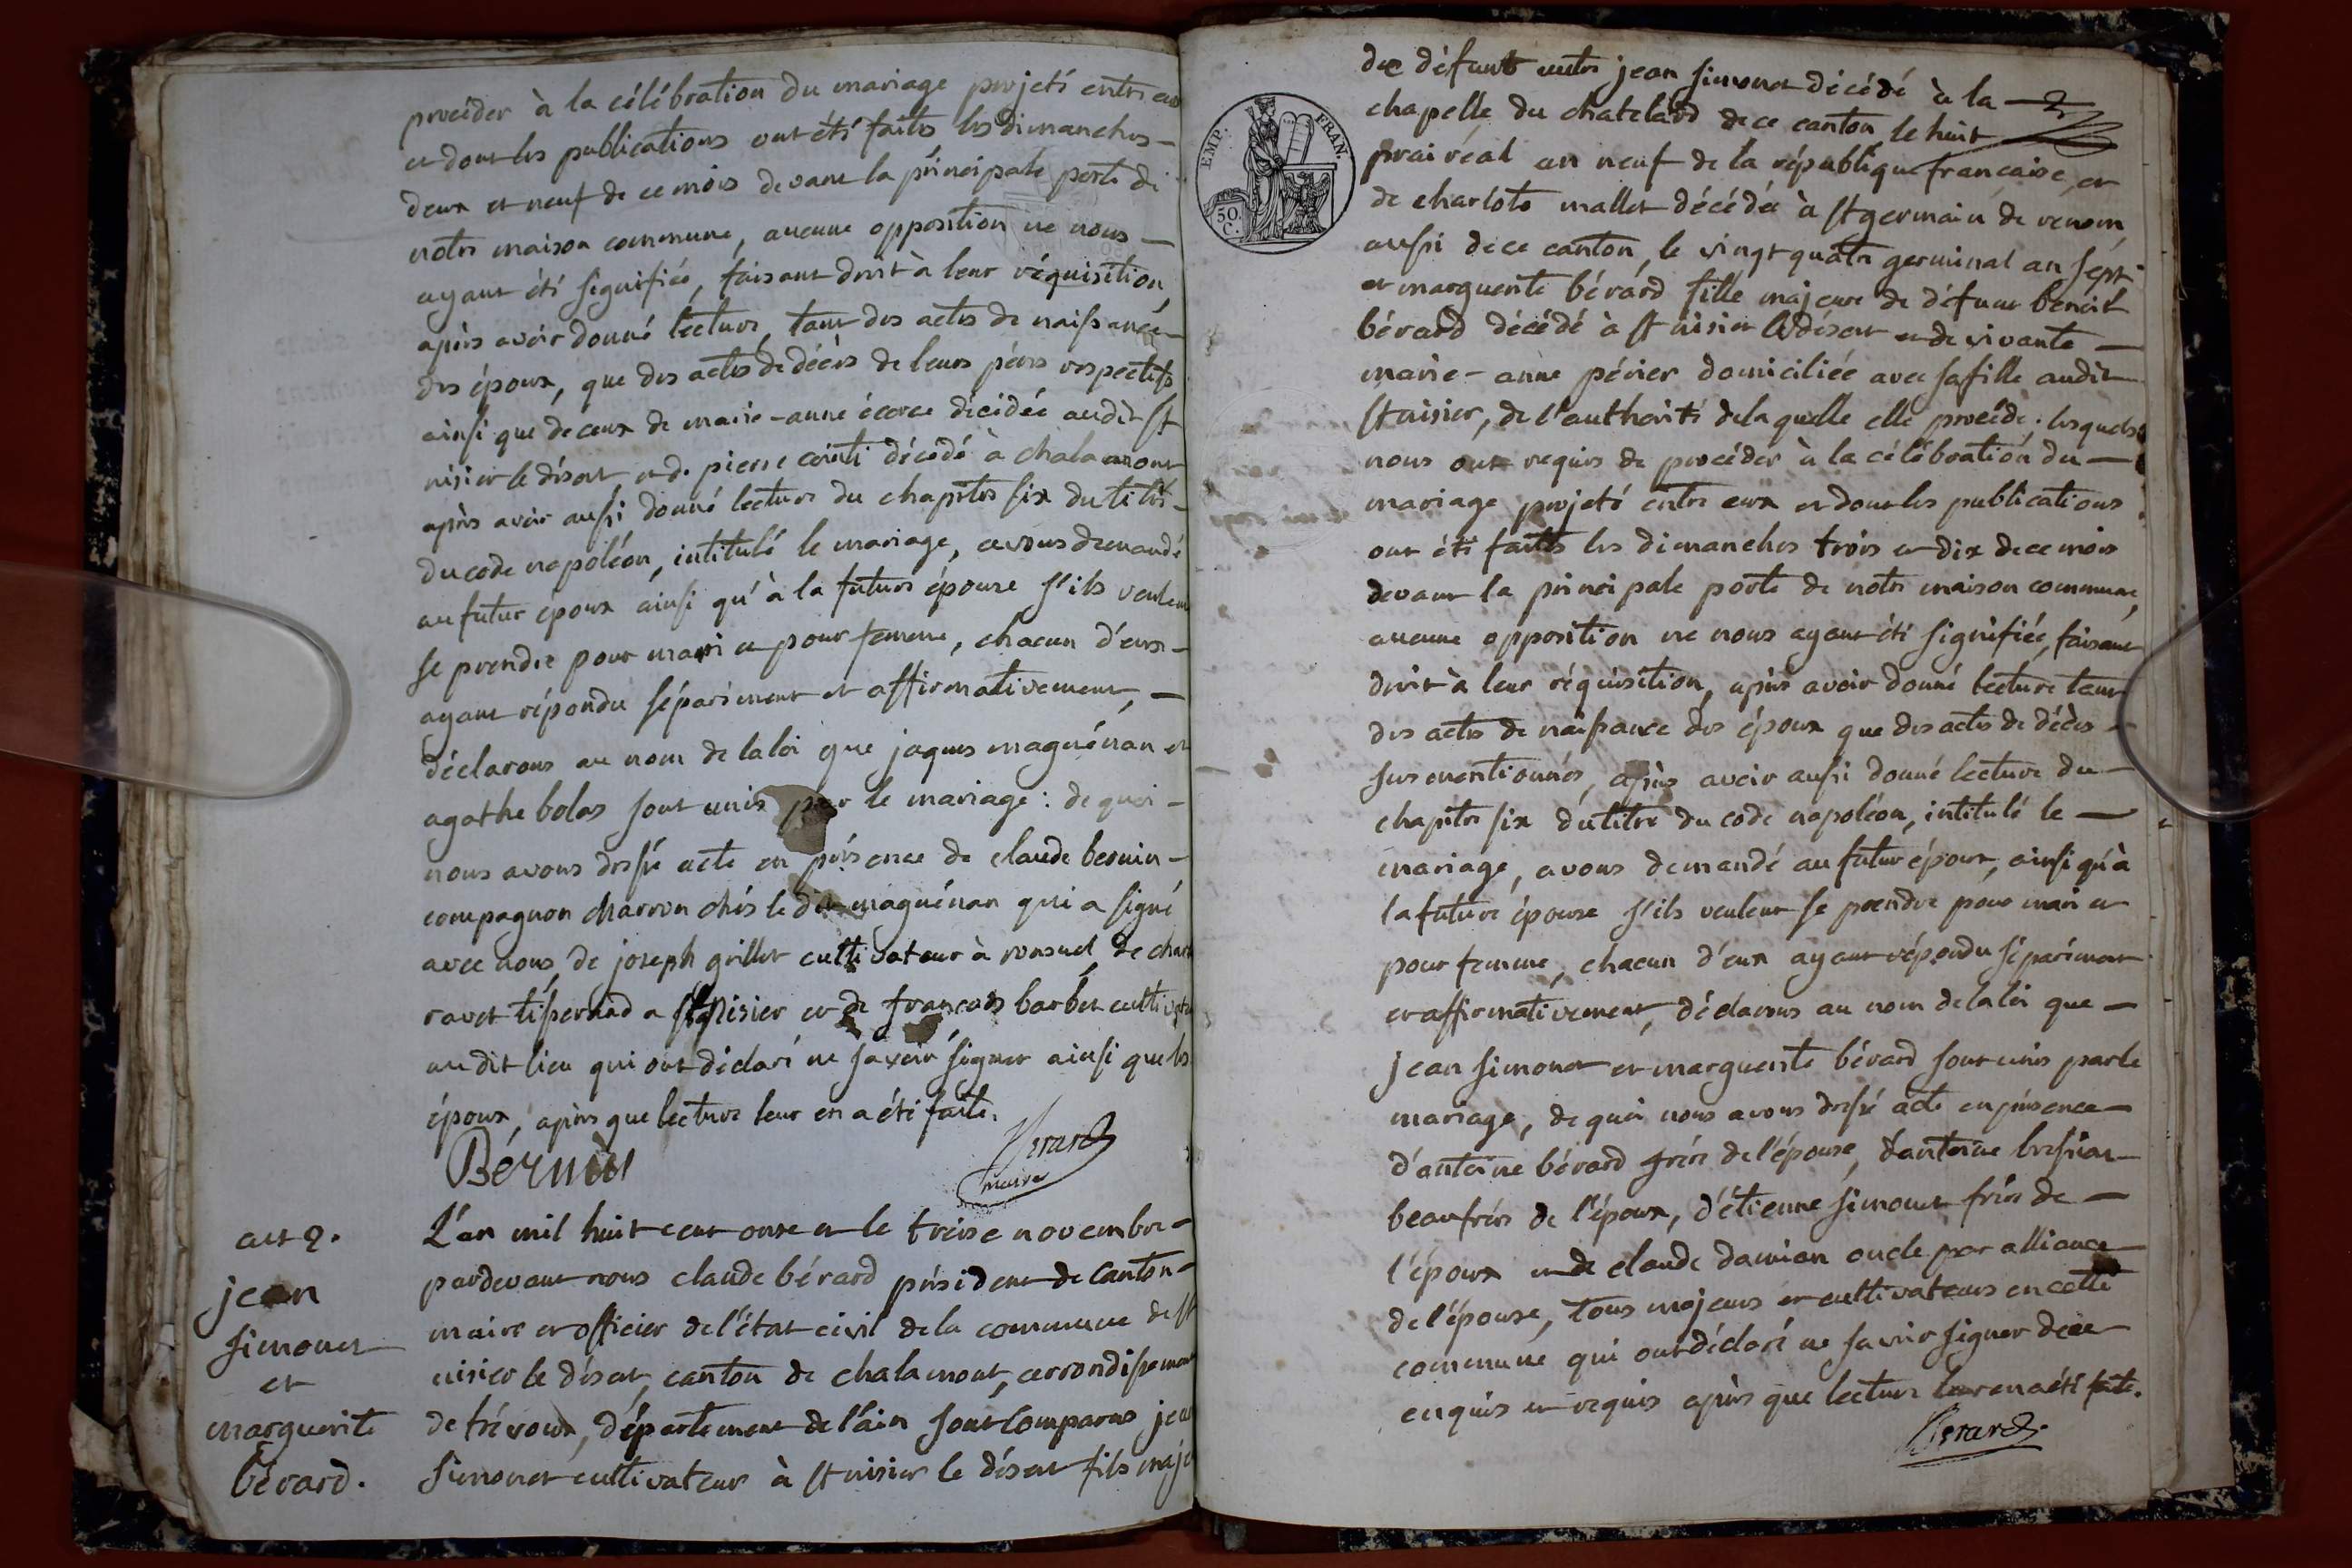 procéder à la célébration du mariage projeté entre eux
et dont les publications ont été faites les dimanches
deux et neuf de ce mois devant la principale porte de
notre maison commune, aucune opposition ne nous
ayant été signifiée, faisant droit à leur réquisition,
après avoir donné lecture, tant des actes de naissance
des époux, que des actes de décès de leurs pères respectifs
ainsi que de ceux de marie-anne écorce décidée audit St
nisier le désert, et d. pierre cointi décédé à chalamont
après avoir aussi donné lecture du chapitre six du titre
du code napoléon, intitulé le mariage, avons demandé
au futur époux ainsi qu'à la future épouse s'ils veulent
se prendre pour mari et pour femme, chacun d'eux
ayant répondu séparément et affirmativement,
déclarons au nom de la loi que jaques maguénan et
agathe bolas sont unis par le mariage : de quoi
nous avons dressé acte en présence de claude bernin
compagnon charron chés le dit maguénan qui a signé
avec nous, de joseph grillet cultivateur à ronsuel, de
ravet tisserand a St nisier et de francois barbet cultivateur
audit lieu qui ont déclaré ne savoir signer ainsi que les
époux, après que lecture leur en a été faite.
Bérnin
Bérard
maire
act 9.
jean
simonet
et
marguerite
bérard.
L'an mil huit cent onze et le treise novembre
pardevant nous claude bérard président de canton
maire et officier de l'état civil de la commune de St
nisier le désert, canton de chalamont, arrondissement
de trévoux, département de l'ain sont comparus jean
simonet cultivateur à St nisier le désert fils maje
EMP. FRAN.
50.
C.
de défunt autre jean simonet décédé à la
chapelle du chatelard de ce canton, le huit
prairéal an neuf de la république francaise, et
de charlote mallet décédée à St germain de renom
aussi de ce canton, le vingt quatre germinal an sept
et marguerite bérard fille majeure de défunt benoit
bérard décédé à St nisier le désert et de vivante
marie-anne périer domiciliée avec sa fille audit
St nisier, de l'authorité de laquelle elle procède. lesquels
nous ont requis de procéder à la célébration du
mariage projeté entre eux et dont les publications
ont été faites les dimanches trois et dix de ce mois
devant la principale porte de notre maison commune,
aucune opposition ne nous ayant été signifiée, faisant
droit à leur réquisition, après avoir donné lecture tant
des actes de naissance des époux que des actes de décès
sus mentionnés, après avoir aussi donné lecture du
chapitre six du titre du code napoléon, intitulé le
mariage, avons demandé au futur époux, ainsi qu'à
la future épouse s'ils veulent se prendre pour mari et
pour femme, chacun d'eux ayant répondu séparément
et affirmativement, déclarons au nom de la loi que
jean simonet et marguerite bérard sont unis par le
mariage, de quoi nous avons dressé acte en présence
d'antoine bérard frère de l'épouse, d'antoine
beaufrère de l'époux, d'étienne simonet frère de
l'époux et de claude damian oncle par alliance
de l'épouse, tous majeurs et cultivateurs en cette
commune qui ont déclaré ne savoir signer de ce
enquis et requis après que lecture leur en a été faite.
Bérard.